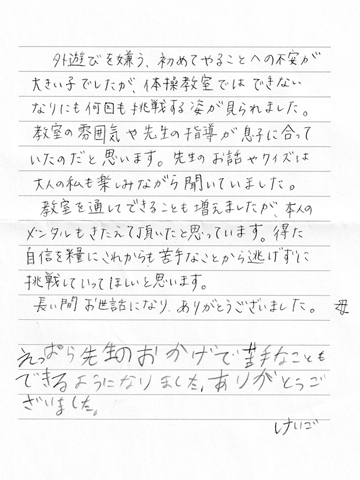 外遊びを嫌う、初めてやることへの不安が
大きい子でしたが、体操教室では できない
なりにも何回も挑戦する姿が見られました。
教室の雰囲気や先生の指導が息子に合って
いたのだと思います。先生のお話やクイズは
大人の私も楽しみながら聞いていました。
教室を通してできることも増えましたが、本人の
メンタルもきたえて頂いたと思っています。得た
自信を糧にこれからも苦手なことから逃げずに
挑戦していってほしいと思います。
長い間 お世話になり、ありがとうございました。 母
えっぱら先生のおかげで苦手なことも
できるようになりました。ありがとうご
ざいました。
けいご